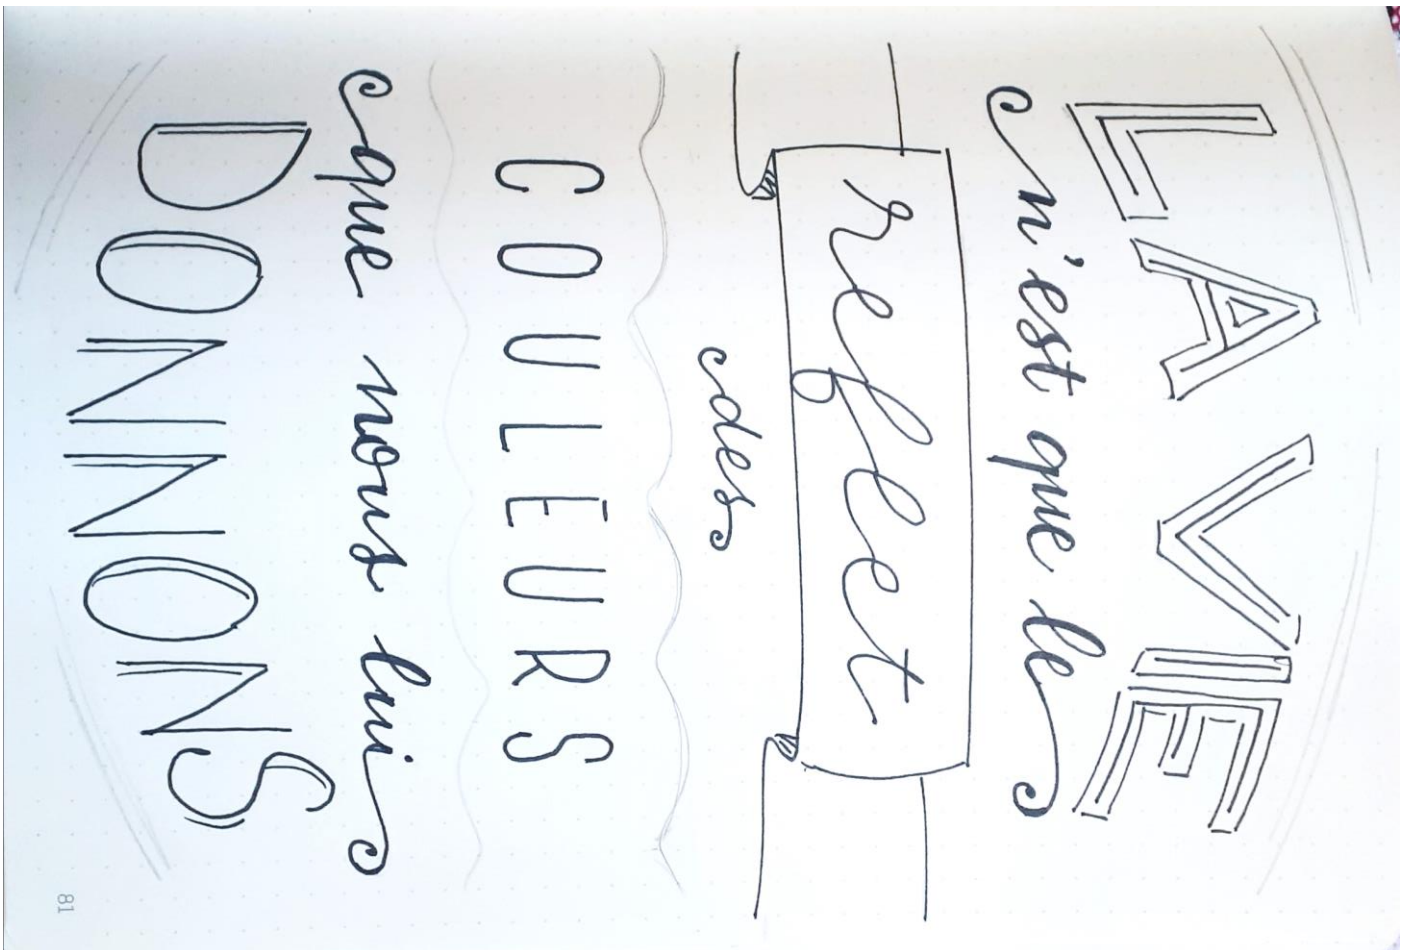 LA VIE
n'est que le
reflet
des
COULEURS
que nous lui
DONNONS
81